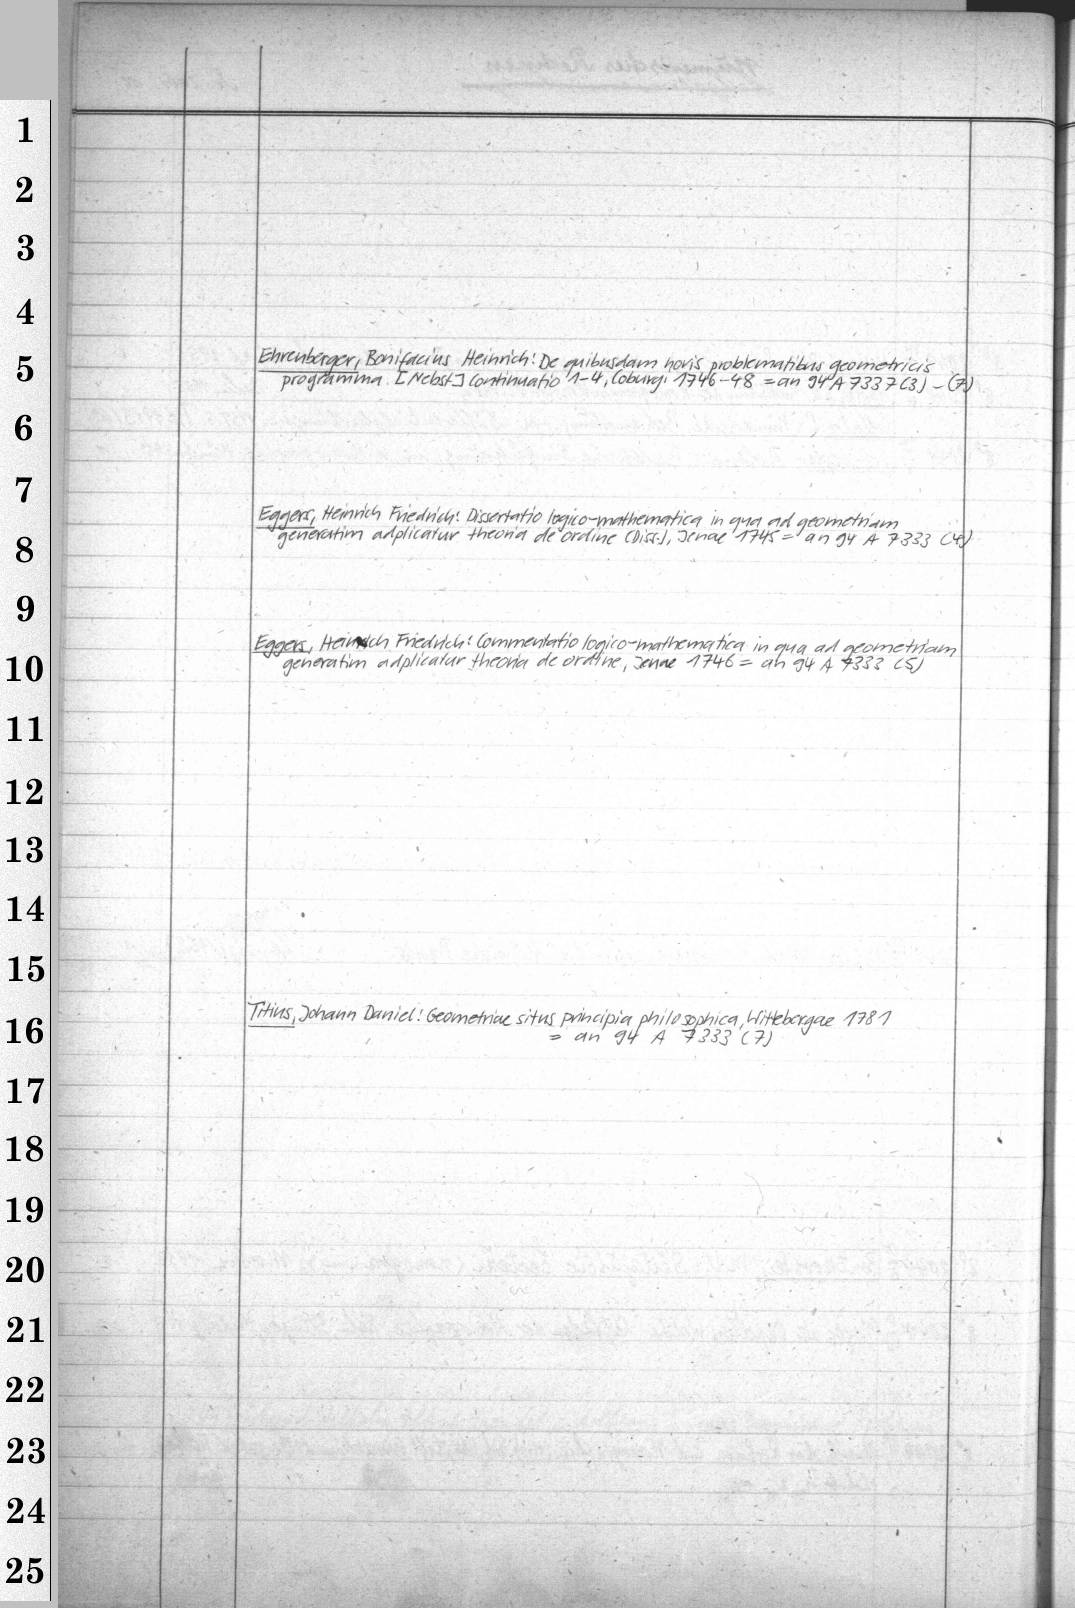 1
2
3
4
5
6
7
8
9
10
11
12
13
14
15
16
17
18
19
20
21
22
23
24
25
Ehrenberger, Bonifacius Heinrich: De quibusdam novis problematibus geometricis
programma. [Nebst] Continuatio 1-4, Coburgi 1746-48 = an 94 A 7337 (3) - (7)
Eggers, Heinrich Friedrich: Dissertatio logico-mathematica in qua ad geometriam
generatim adplicatur theoria de ordine (Diss.), Jenae 1745 = an 94 A 7333 (4)
Eggers, Heinrich Friedrich: Commentatio logico-mathematica in qua ad geometriam
generatim adplicatur theoria de ordine, Jenae 1746 = an 94 A 7333 (5)
Titius, Johann Daniel: Geometriae situs principia philosophica, Wittebergae 1781
= an 94 A 7333 (7)